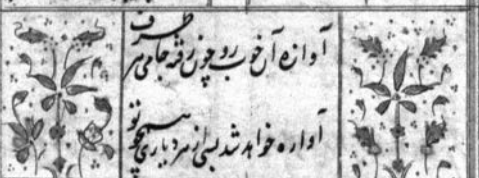 آوازه آن خوب رو چون رفته جامی هر طرف
آواره خواهد شد بسی از هر دیاری همچو تو